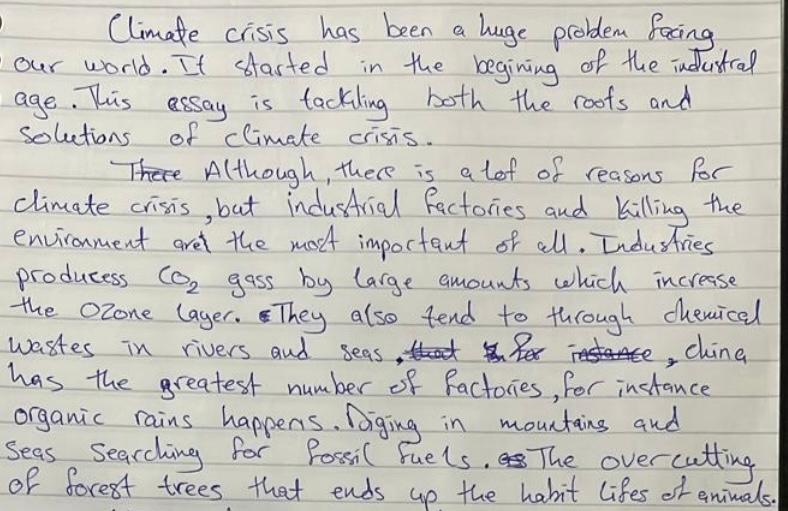 Climate crisis has been a huge problem facing
our world. It started in the begining of the industral
age. This essay is tackling both the roots and
solutions of climate crisis.
There Although, there is a lot of reasons for
climate crisis, but industrial factories and killing the
environment are the most important of all. Industries
producess CO₂ gass by large amounts which increase
the Ozone layer. They also tend to through chemical
wastes in rivers and seas, that for instance, china
has the greatest number of factories, for instance
organic rains happens. Diging in mountains and
seas searching for fossil fuels. The overcutting
of forest trees that ends up the habit lifes of animals.